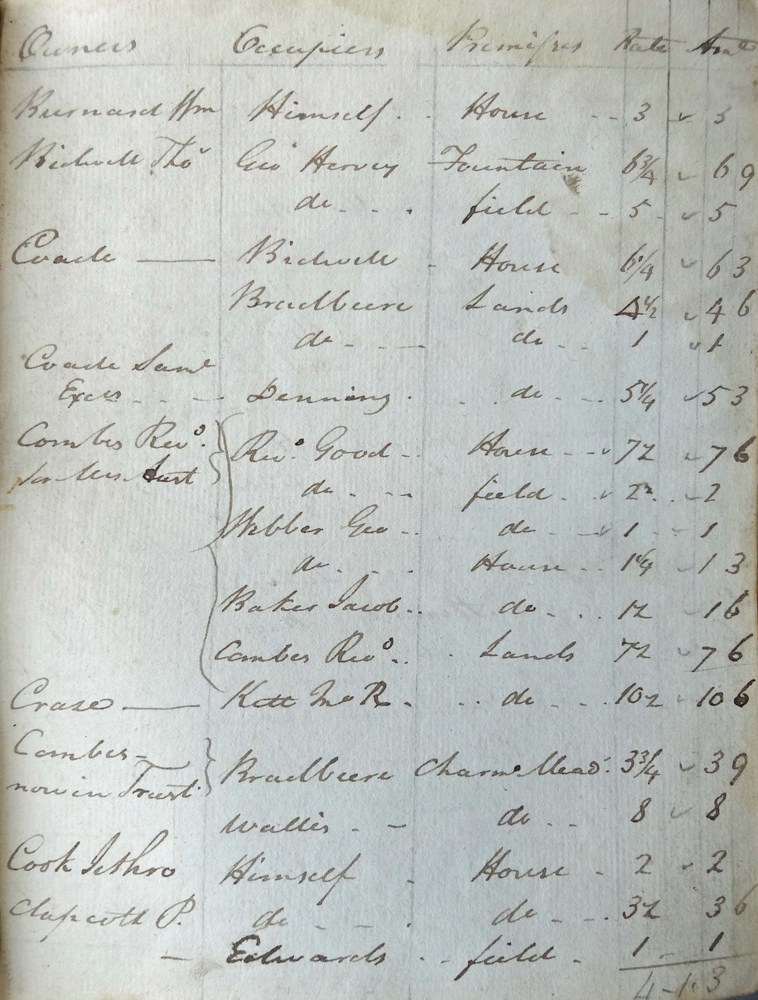 Owners Occupiers Premises Rate Amt
Burnard Wm Himself House 3 3
Bidwell Thos Geo Harvey Fountain 6 3/4 6 9
do field 5 5
Coade Bidwell House 6 1/4 6 3
Bradbeere Lands 4 1/2 4 6
do do 1 1
Coade Saml
Exors Denning do 5 1/4 5 3
Combes Revd. Revd. Good House 7 1/2 7 6
do field 2 2
Webber Geo do 1 1
do House 1 1/4 1 3
Baker Jacob do 1 1/2 1 6
Combes Revd. Lands 7 1/2 7 6
Craze do 10 1/2 10 6
Combes
now in Trust Bradbeere Charme Mead 3 3/4 3 9
Wallis do 8 8
Cook Jethro Himself House 2 2
Clapcoth P. do do 3 1/2 3 6
Edwards field 1 1
4-1-3